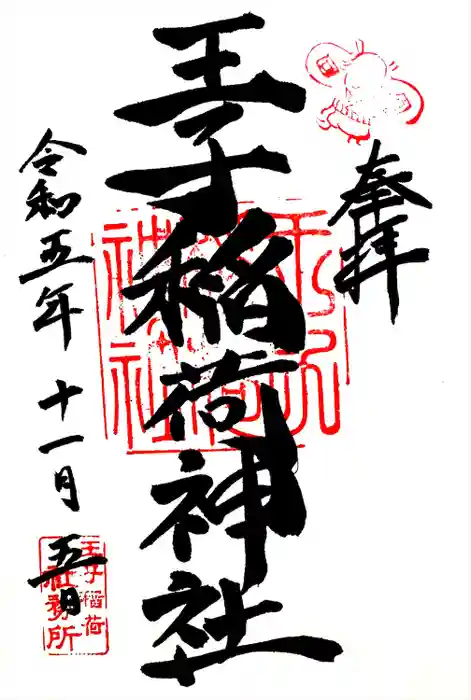 奉拝
王子稲荷神社
令和五年十一月五日
王子稲荷
社務所